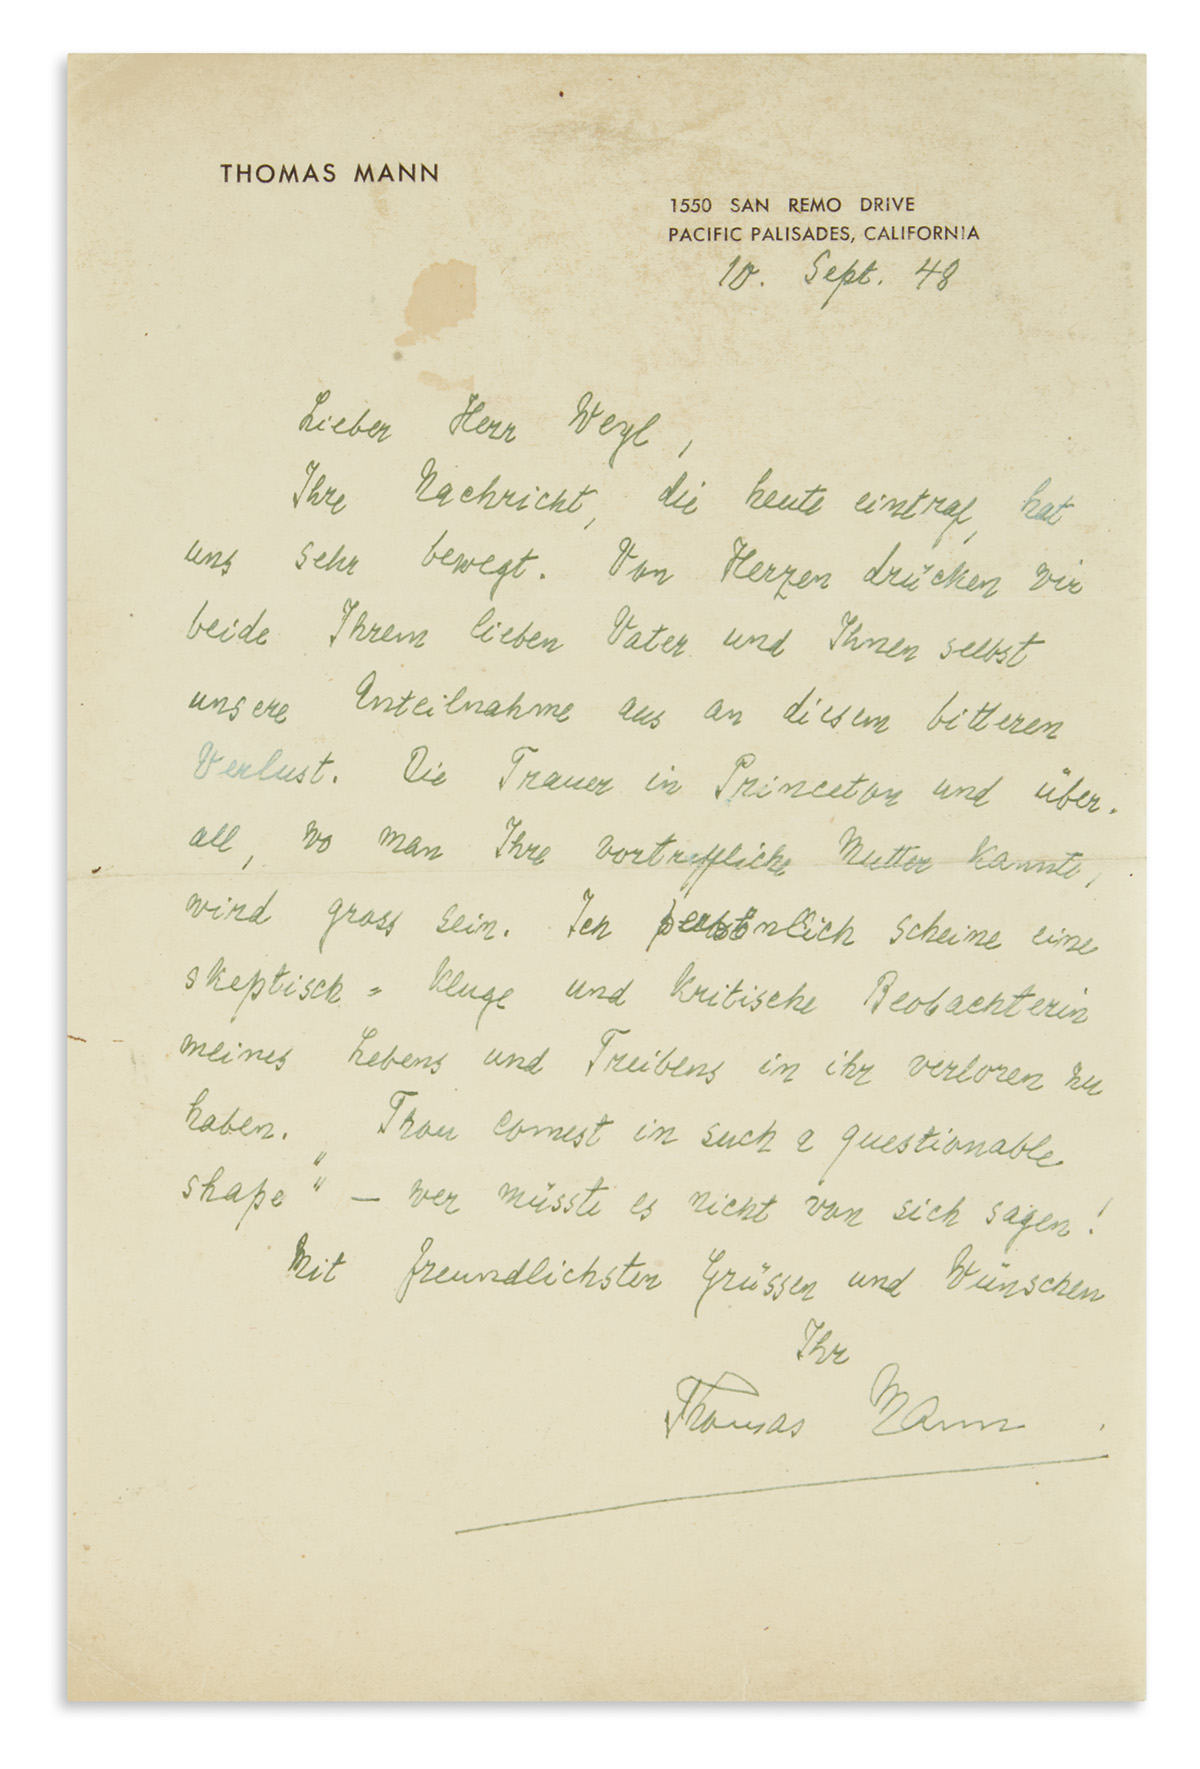 THOMAS MANN
1550 SAN REMO DRIVE
PACIFIC PALISADES, CALIFORNIA
10. Sept. 48
Lieber Herr Weyl,
Ihre Nachricht, die heute eintraf, hat
uns sehr bewegt. Von Herzen drücken wir
beide Ihrem lieben Vater und Ihnen selbst
unsere Anteilnahme aus an diesem bitteren
Verlust. Die Trauer in Princeton und über-
all, wo man Ihre vortreffliche Mutter kannte,
wird gross sein. Ich persönlich scheine eine
skeptisch = kluge und kritische Beobachterin
meines Lebens und Treibens in ihr verloren zu
haben. „Thou comest in such a questionable
shape“ — wer müsste es nicht von sich sagen!
Mit freundlichsten Grüssen und Wünschen
Ihr
Thomas Mann